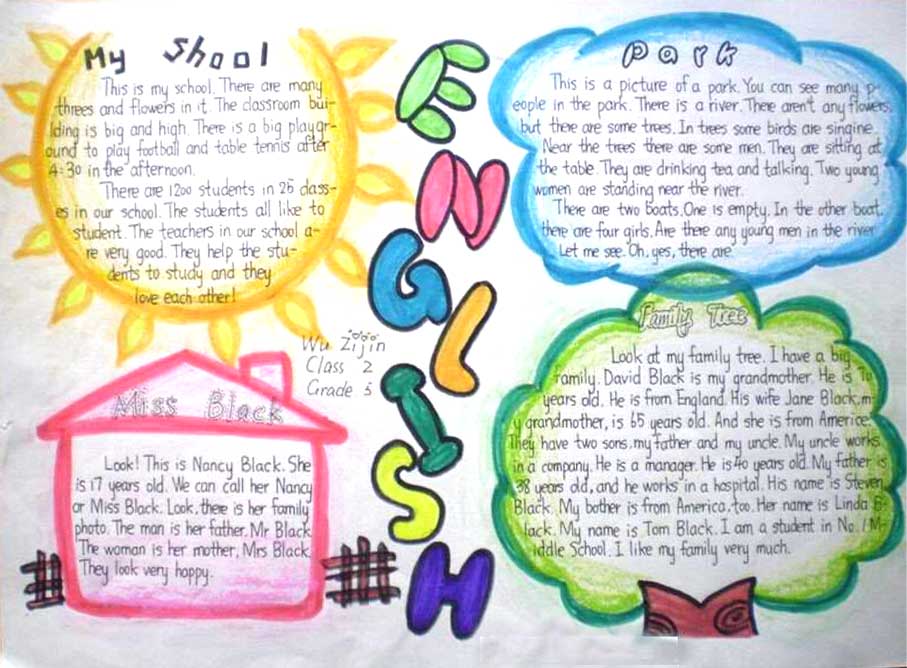 My Shool
This is my school. There are many
threes and flowers in it. The classroom bui-
lding is big and high. There is a big playgr-
ound to play football and table tennis after
4:30 in the afternoon.
There are 1200 students in 25 class-
es in our school. The students all like to
student. The teachers in our school a-
re very good. They help the stu-
dents to study and they
love each other!
ENGLISH
Park
This is a picture of a park. You can see many p-
eople in the park. There is a river. There aren't any flowers,
but there are some trees. In trees some birds are singine.
Near the trees there are some men. They are sitting at
the table. They are drinking tea and talking. Two young
women are standing near the river.
There are two boats. One is empty. In the other boat,
there are four girls. Are there any young men in the river
Let me see. Oh, yes, there are.
Wu Zijin
Class 2
Grade 5
Miss Black
Look! This is Nancy Black. She
is 17 years old. We can call her Nancy
or Miss Black. Look, there is her family
photo. The man is her father, Mr Black.
The woman is her mother, Mrs Black.
They look very happy.
Family Tree
Look at my family tree. I have a big
family. David Black is my grandmother. He is 70
years old. He is from England. His wife Jane Black, m-
y grandmother, is 65 years old. And she is from America.
They have two sons, my father and my uncle. My uncle works
in a company. He is a manager. He is 40 years old. My father is
38 years old, and he works in a hospital. His name is Steven
Black. My bother is from America, too. Her name is Linda B-
lack. My name is Tom Black. I am a student in No. 1 M-
iddle School. I like my family very much.